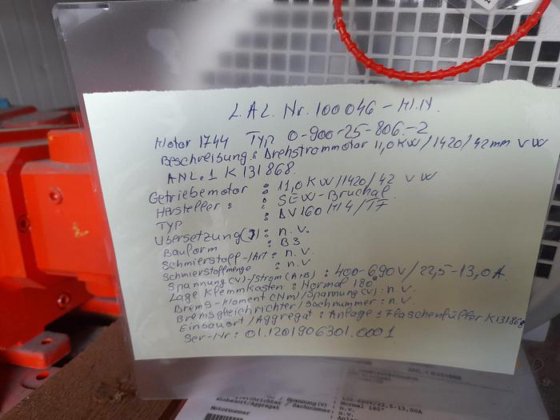 L.A.L. Nr. 100046-M.N.
Motor 1744 Typ 0-900-25-806.-2
Beschreibung: Drehstrommotor 11,0KW/1420/42mm VW
ANL.1 K131868
Getriebemotor : 11,0KW/1420/42 VW
Hersteller : SEW-Bruchal.
Typ : DV160M4/TF
Übersetzung(I): n.v.
Bauform : B3
Schmierstoff-/Art: n.v.
Schmierstoffmenge : n.v
Spannung(V)-/Strom(A): 400-690V/22,5-13,0A.
Lage Klemmkasten: Normal 180°
Brems-Moment(Nm)/Spannung(V): n.v.
Bremsgleichrichter/Sachnummer: n.v.
Einbauort/Aggregat: Anlage: Flaschenfüller K131868
Ser-Nr: 01.1201906301.0001